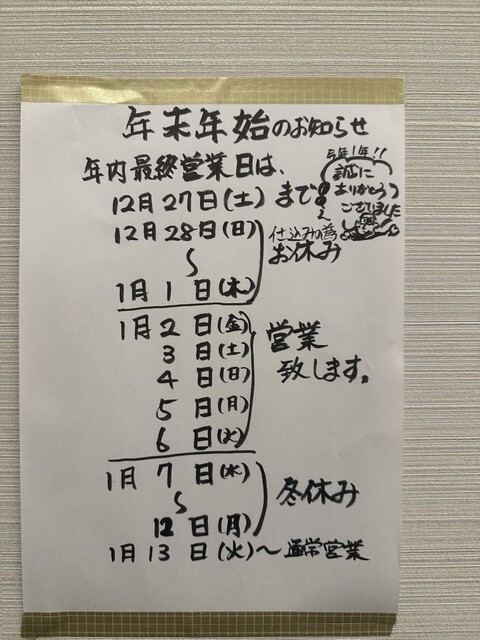 年末年始のお知らせ
年内最終営業日は、
12月27日(土)まで
今年1年!!
誠に
ありがとう
ございました
12月28日(日)
〜
1月1日(木)
仕込みの為
お休み
1月2日(金)
3日(土)
4日(日)
5日(月)
6日(火)
営業
致します。
1月7日(水)
〜
12日(月)
冬休み
1月13日(火)〜通常営業